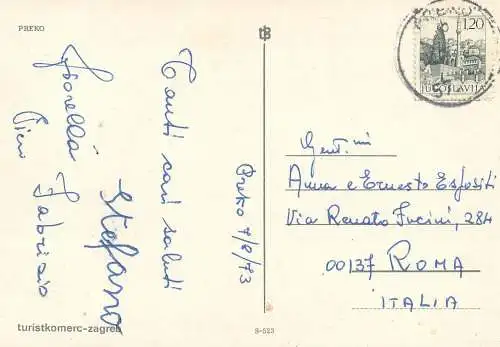 PREKO
Tanti cari saluti
Fiorella
Pino
Stefano
Fabrizio
Preko 7/8/73
turistkomerc-zagreb
S-523
1,20
JUGOSLAVIJA
Gent.mi
Anna e Ernesto Esposti
Via Renato Fucini, 284
00137 ROMA
ITALIA